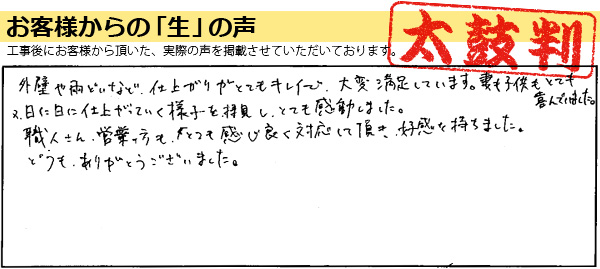 お客様からの「生」の声
工事後にお客様から頂いた、実際の声を掲載させていただいております。
太鼓判
外壁や雨どいなど、仕上がりがとてもキレイで、大変満足しています。妻も子供もとても
喜んでいました。
又、日に日に仕上がっていく様子を拝見し、とても感動しました。
職人さん、営業の方も、とても感じ良く対応して頂き、好感を持ちました。
どうも、ありがとうございました。